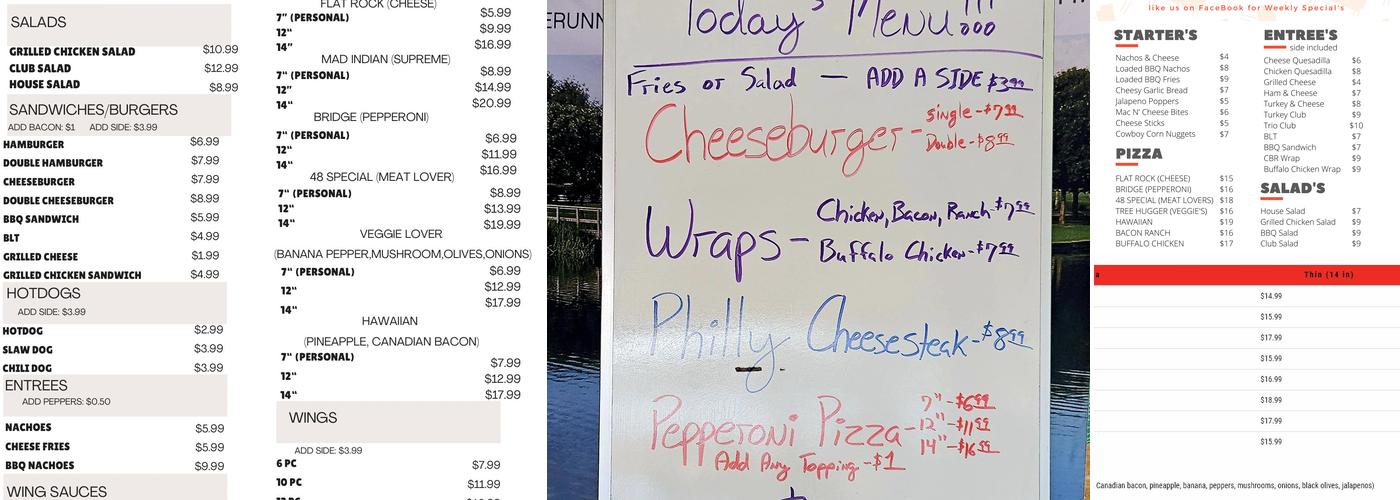 SALADS
GRILLED CHICKEN SALAD $10.99
CLUB SALAD $12.99
HOUSE SALAD $8.99
SANDWICHES/BURGERS
ADD BACON: $1 ADD SIDE: $3.99
HAMBURGER $6.99
DOUBLE HAMBURGER $7.99
CHEESEBURGER $7.99
DOUBLE CHEESEBURGER $8.99
BBQ SANDWICH $5.99
BLT $4.99
GRILLED CHEESE $1.99
GRILLED CHICKEN SANDWICH $4.99
HOTDOGS
ADD SIDE: $3.99
HOTDOG $2.99
SLAW DOG $3.99
CHILI DOG $3.99
ENTREES
ADD PEPPERS: $0.50
NACHOES $5.99
CHEESE FRIES $5.99
BBQ NACHOES $9.99
WING SAUCES
FLAT ROCK (CHEESE)
7" (PERSONAL) $5.99
12" $9.99
14" $16.99
MAD INDIAN (SUPREME)
7" (PERSONAL) $8.99
12" $14.99
14" $20.99
BRIDGE (PEPPERONI)
7" (PERSONAL) $6.99
12" $11.99
14" $16.99
48 SPECIAL (MEAT LOVER)
7" (PERSONAL) $8.99
12" $13.99
14" $19.99
VEGGIE LOVER
(BANANA PEPPER,MUSHROOM,OLIVES,ONIONS)
7" (PERSONAL) $6.99
12" $12.99
14" $17.99
HAWAIIAN
(PINEAPPLE, CANADIAN BACON)
7" (PERSONAL) $7.99
12" $12.99
14" $17.99
WINGS
ADD SIDE: $3.99
6 PC $7.99
10 PC $11.99
ERUNN
Today's Menu!!!
Fries or Salad — ADD A SIDE $3.99
Cheeseburger - Single - $7.99
Double - $8.99
Wraps - Chicken, Bacon, Ranch $7.99
Buffalo Chicken - $7.99
Philly Cheesesteak - $8.99
Pepperoni Pizza - 7" - $6.99
12" - $11.99
14" - $16.99
Add Any Topping - $1
like us on FaceBook for Weekly Special's
STARTER'S
Nachos & Cheese $4
Loaded BBQ Nachos $8
Loaded BBQ Fries $9
Cheesy Garlic Bread $7
Jalapeno Poppers $5
Mac N' Cheese Bites $6
Cheese Sticks $5
Cowboy Corn Nuggets $7
PIZZA
FLAT ROCK (CHEESE) $15
BRIDGE (PEPPERONI) $16
48 SPECIAL (MEAT LOVERS) $18
TREE HUGGER (VEGGIE'S) $16
HAWAIIAN $19
BACON RANCH $16
BUFFALO CHICKEN $17
ENTREE'S
side included
Cheese Quesadilla $6
Chicken Quesadilla $8
Grilled Cheese $4
Ham & Cheese $7
Turkey & Cheese $8
Turkey Club $9
Trio Club $10
BLT $7
BBQ Sandwich $7
CBR Wrap $9
Buffalo Chicken Wrap $9
SALAD'S
House Salad $7
Grilled Chicken Salad $9
BBQ Salad $9
Club Salad $9
a Thin (14 in)
$14.99
$15.99
$17.99
$15.99
$16.99
$18.99
$17.99
$15.99
Canadian bacon, pineapple, banana, peppers, mushrooms, onions, black olives, jalapenos)